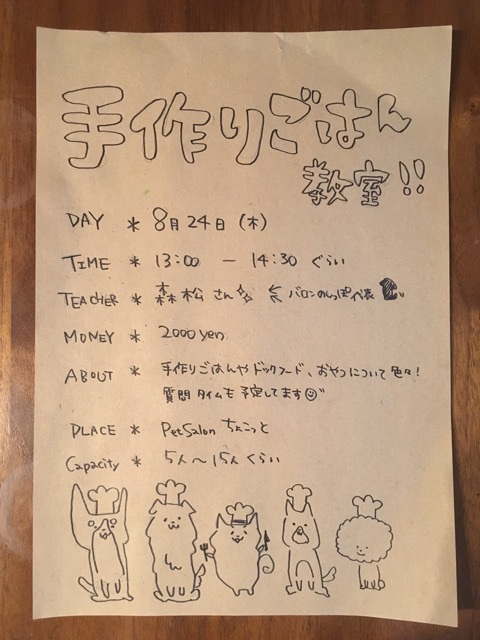 手作りごはん
教室!!
DAY * 8月24日(木)
TIME * 13:00 ー 14:30 ぐらい
TEACHER * 森松さん ← バロンのしっぽ代表
MONEY * 2000 yen
ABOUT * 手作りごはんやドックフード、おやつについて色々!
質問タイムも予定してます
PLACE * PetSalon ちょこっと
Capacity * 5人〜15人くらい